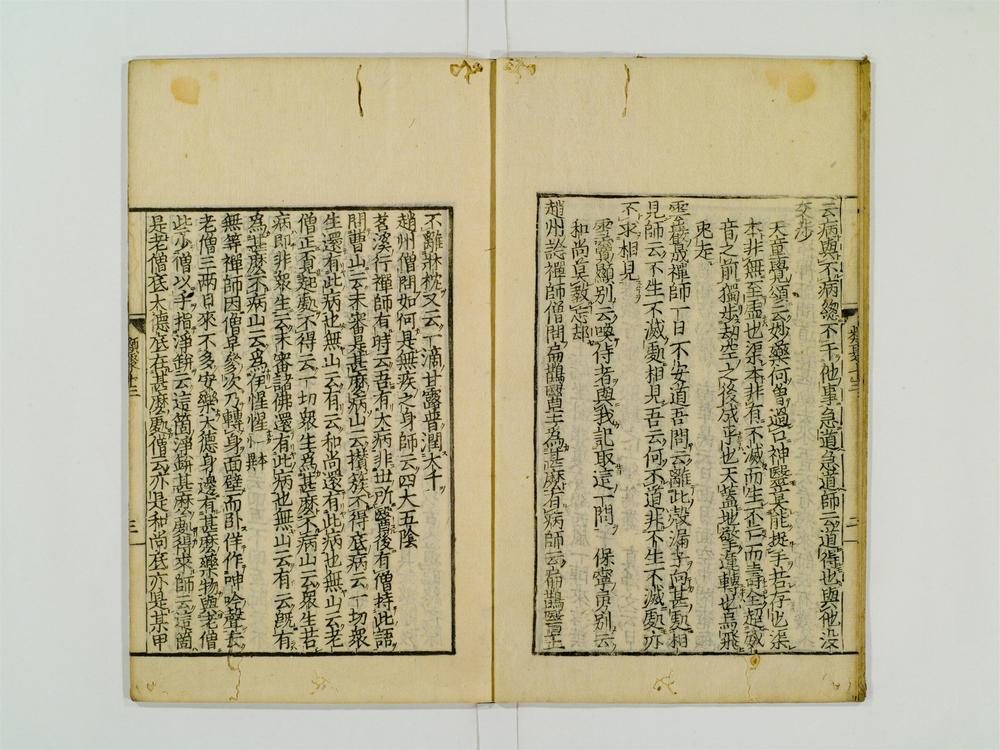 云病與不病緫不干他事急道急道師云道得也與他没
交涉
天童覺頌云妙藥何曽過口神醫莫能捉手若存也渠
本非無至虚也渠本非有不滅而生不亡而壽全超威
音之前獨步劫空之後成平也天蓋地擎運轉也烏飛
兎走
雲巖晟禪師一日不安道吾問云離此殻漏子向甚處相
見師云不生不滅處相見吾云何不道非不生不滅處亦
不求相見
雪竇顯別云喚侍者與我記取這一問　保寧勇別云
和尚早敦忘却
趙州諗禪師僧問扁鵲醫王爲甚麽有病師云扁鵲醫王
不離牀枕又云一滴甘露普潤大千
趙州僧問如何是無疾之身師云四大五陰
茗溪行禪師有時云吾有大病非世所醫後有僧持此語
問曹山云未審是甚麽病山云攅蔟不得底病云一切衆
生還有此病也無山云有云和尚還有此病也無山云老
僧正覓起處不得云一切衆生爲甚麽不病山云衆生若
病即非衆生云未審諸佛還有此病也無山云有云既有
爲甚麽不病山云爲伊惺惺
無等禪師因僧早參次乃轉身面壁而卧佯作呻吟聲云
老僧三兩日來不多安樂大德身邊有甚麽藥物與老僧
些少僧以手指淨缾云這箇淨缾甚麽處得來師云這箇
是老僧底大德底在甚麽處僧云亦是和尚底亦是某甲
類聚十三
三